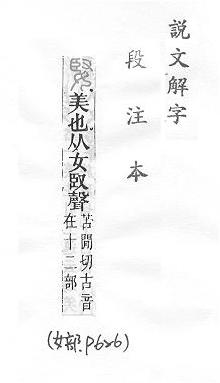 說文解字
段注本
美也从女臤聲
苦閒切古音
在十二部
(女部.P626)